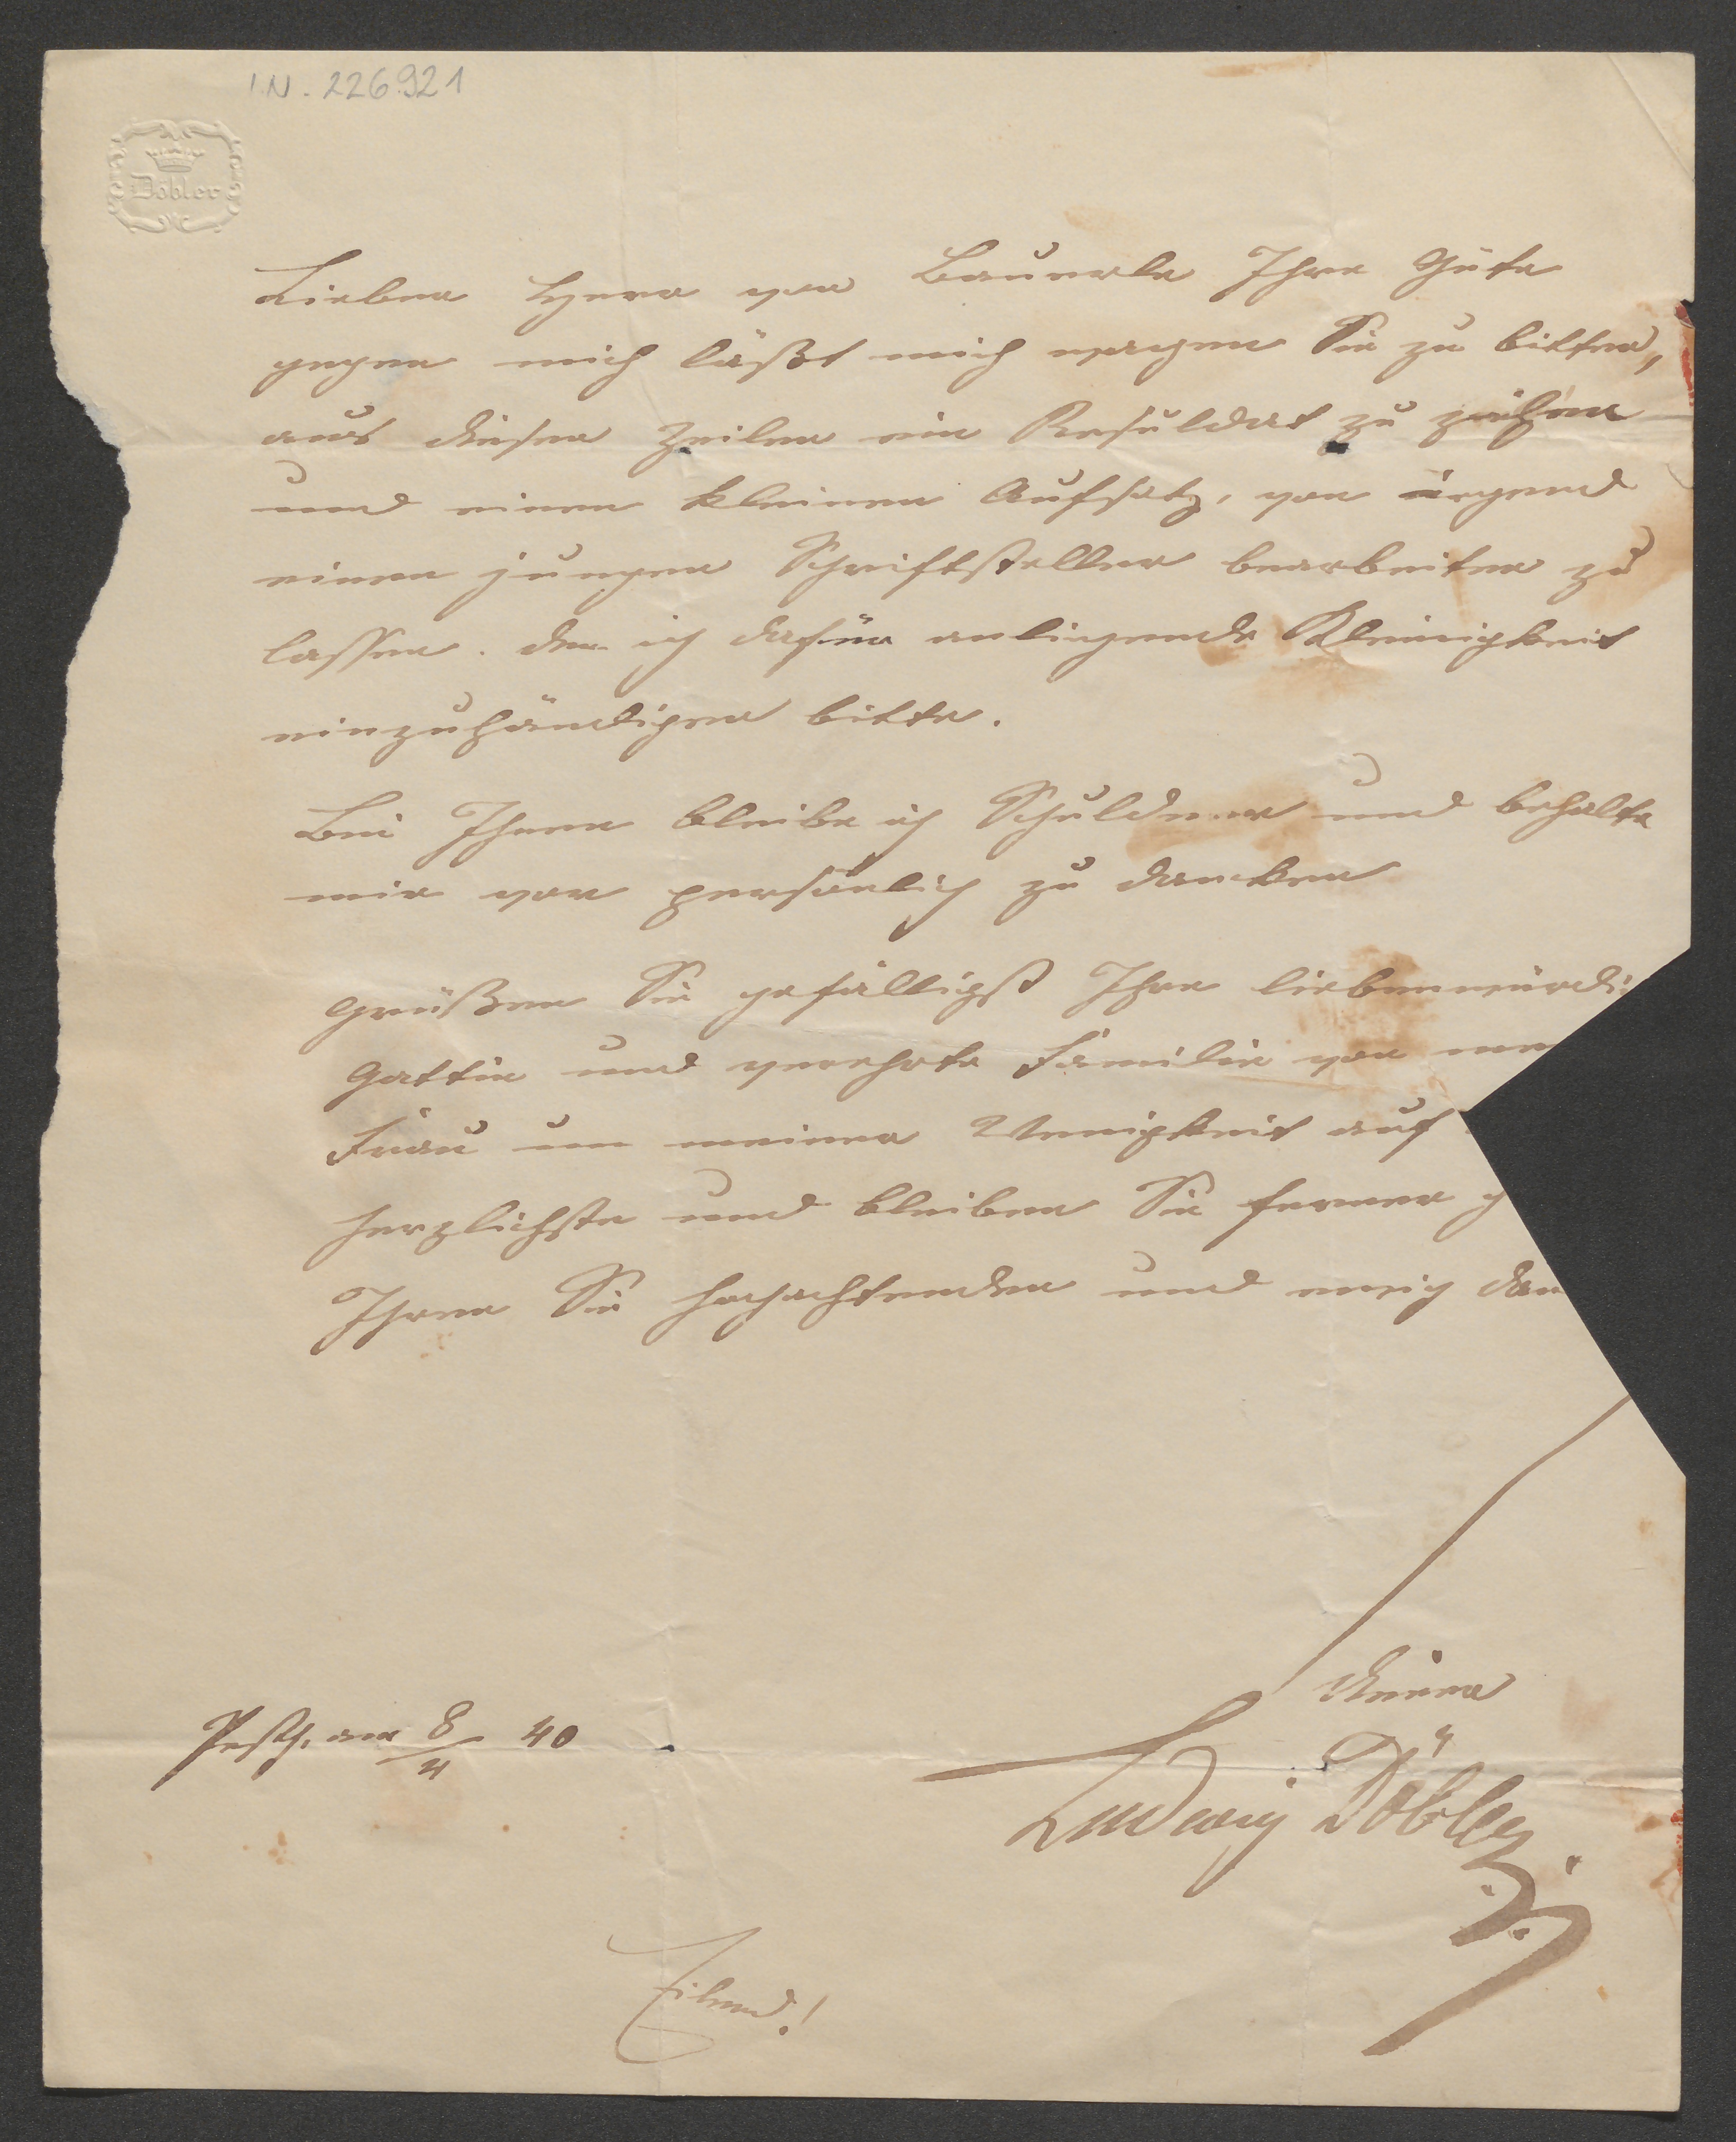 I.N. 226.921
Döbler
Lieber Herr von Bäuerle Ihre Güte
gegen mich läßt mich wagen Sie zu bitten,
aus diesen Zeilen ein Resuldat zu ziehen
und einen kleinen Aufsatz, von irgend
einen jungen Schriftsteller bearbeiten zu
lassen. den ich dafür anliegende Kleinigkeit
einzuhändigen bitte.
Bei Ihnen bleibe ich Schuldner und behalte
mir vor persönlich zu danken
Grüßen Sie gefälligst Ihre liebenswürdi
Gattin und verehrte Familie von mei
Frau un meiner Wenigkeit auf
herzlichste und bleiben Sie ferner g
Ihren Sie hochachtenden und ewig dan
Diener
Pesth. am 8/4 40
Ludwig Döbler
Eilend!